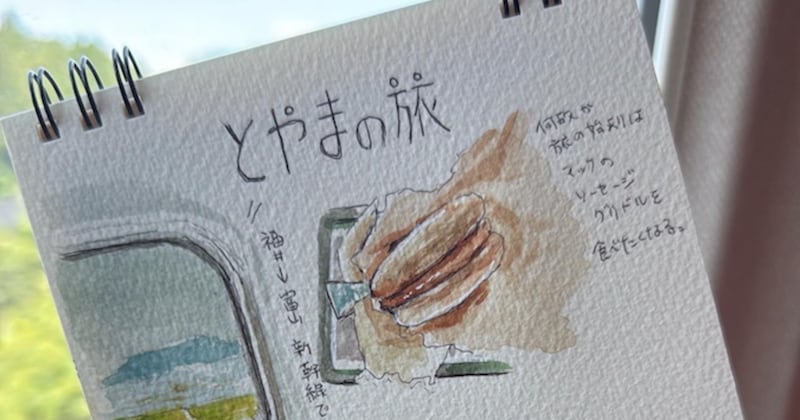 とやまの旅
〃福井→富山 新幹線で
何故か
旅の始まりは
マックの
ソーセージ
グリドルを
食べたくなる。